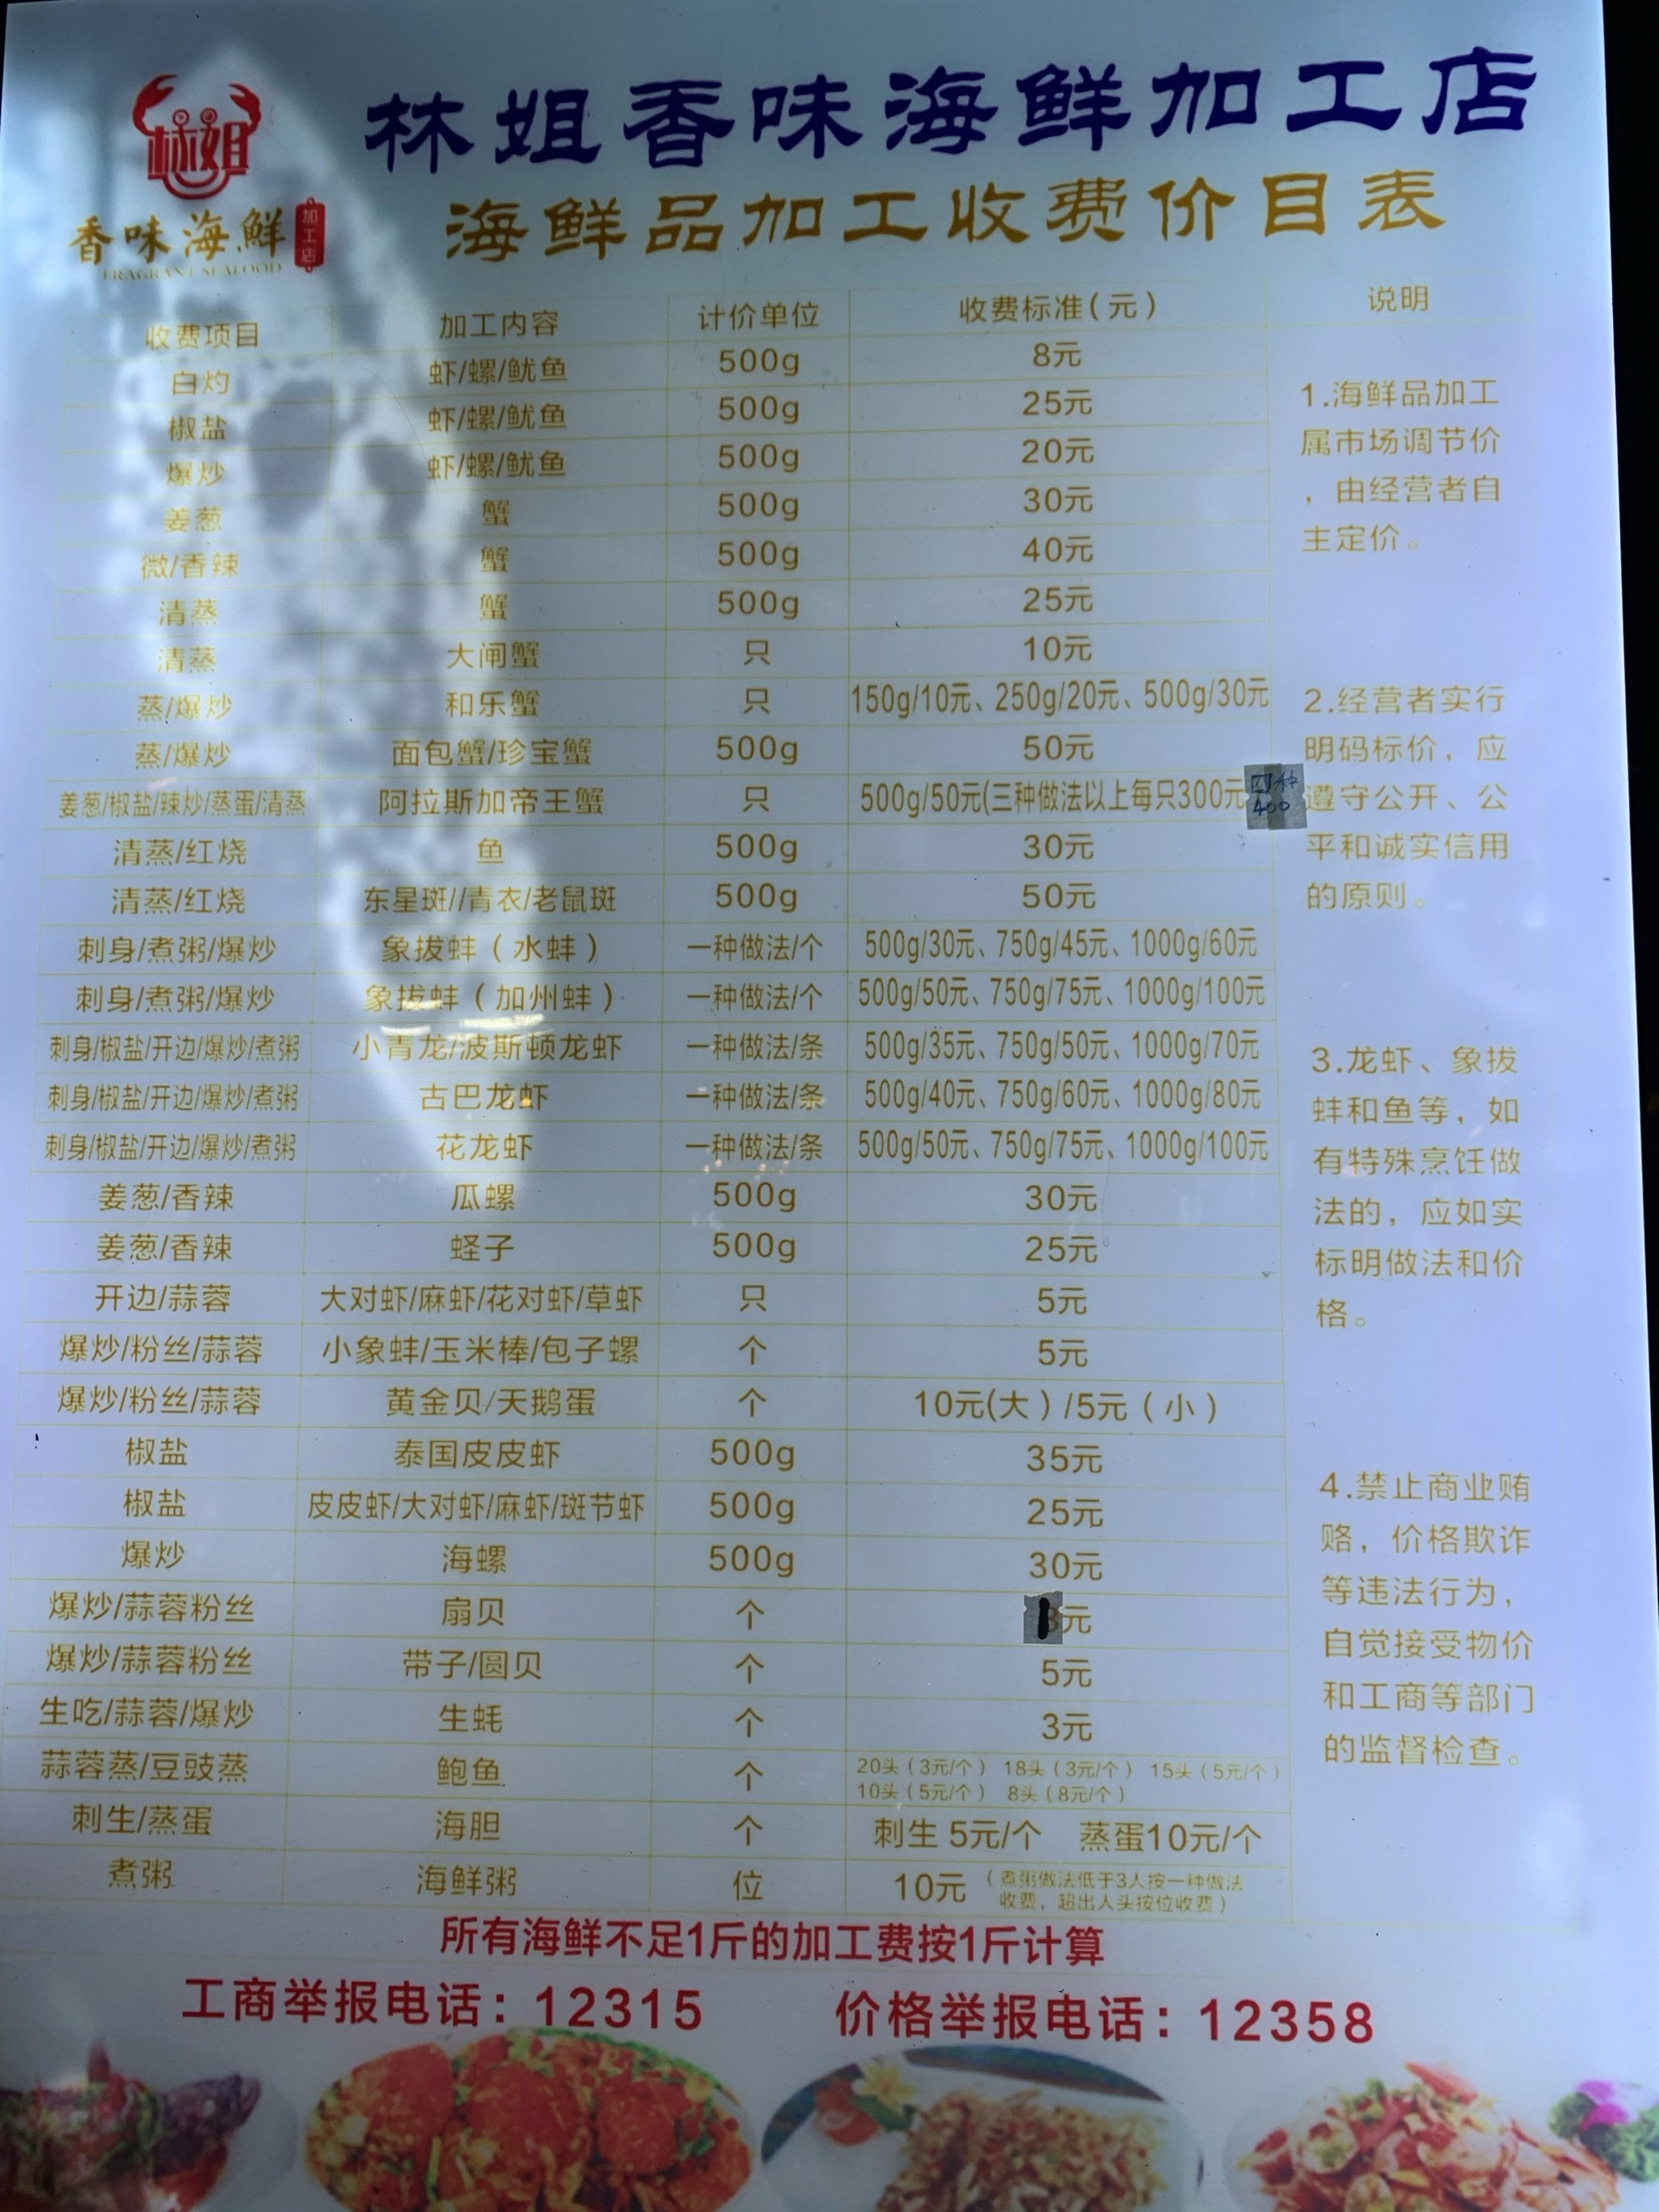 林姐香味海鲜加工店
林姐
香味海鲜
加工店
FRAGRANT SEAFOOD
海鲜品加工收费价目表
收费项目 加工内容 计价单位 收费标准(元) 说明
白灼 虾/螺/鱿鱼 500g 8元
椒盐 虾/螺/鱿鱼 500g 25元
爆炒 虾/螺/鱿鱼 500g 20元
姜葱 蟹 500g 30元
微/香辣 蟹 500g 40元
清蒸 蟹 500g 25元
清蒸 大闸蟹 只 10元
蒸/爆炒 和乐蟹 只 150g/10元、250g/20元、500g/30元
蒸/爆炒 面包蟹/珍宝蟹 500g 50元
姜葱/椒盐/辣炒/蒸蛋/清蒸 阿拉斯加帝王蟹 只 500g/50元(三种做法以上每只300元 四种 400
清蒸/红烧 鱼 500g 30元
清蒸/红烧 东星斑//青衣/老鼠斑 500g 50元
刺身/煮粥/爆炒 象拔蚌（水蚌） 一种做法/个 500g/30元、750g/45元、1000g/60元
刺身/煮粥/爆炒 象拔蚌（加州蚌） 一种做法/个 500g/50元、750g/75元、1000g/100元
刺身/椒盐/开边/爆炒/煮粥 小青龙/波斯顿龙虾 一种做法/条 500g/35元、750g/50元、1000g/70元
刺身/椒盐/开边/爆炒/煮粥 古巴龙虾 一种做法/条 500g/40元、750g/60元、1000g/80元
刺身/椒盐/开边/爆炒/煮粥 花龙虾 一种做法/条 500g/50元、750g/75元、1000g/100元
姜葱/香辣 瓜螺 500g 30元
姜葱/香辣 蛏子 500g 25元
开边/蒜蓉 大对虾/麻虾/花对虾/草虾 只 5元
爆炒/粉丝/蒜蓉 小象蚌/玉米棒/包子螺 个 5元
爆炒/粉丝/蒜蓉 黄金贝/天鹅蛋 个 10元(大)/5元（小）
椒盐 泰国皮皮虾 500g 35元
椒盐 皮皮虾/大对虾/麻虾/斑节虾 500g 25元
爆炒 海螺 500g 30元
爆炒/蒜蓉粉丝 扇贝 个 3元
爆炒/蒜蓉粉丝 带子/圆贝 个 5元
生吃/蒜蓉/爆炒 生蚝 个 3元
蒜蓉蒸/豆豉蒸 鲍鱼 个 20头（3元/个） 18头（3元/个） 15头（5元/个）
10头（5元/个） 8头（8元/个）
刺生/蒸蛋 海胆 个 刺生 5元/个 蒸蛋10元/个
煮粥 海鲜粥 位 10元（煮粥做法低于3人按一种做法
收费，超出人头按位收费）
1.海鲜品加工
属市场调节价
，由经营者自
主定价。
2.经营者实行
明码标价，应
遵守公开、公
平和诚实信用
的原则。
3.龙虾、象拔
蚌和鱼等，如
有特殊烹饪做
法的，应如实
标明做法和价
格。
4.禁止商业贿
赂，价格欺诈
等违法行为，
自觉接受物价
和工商等部门
的监督检查。
所有海鲜不足1斤的加工费按1斤计算
工商举报电话：12315 价格举报电话：12358